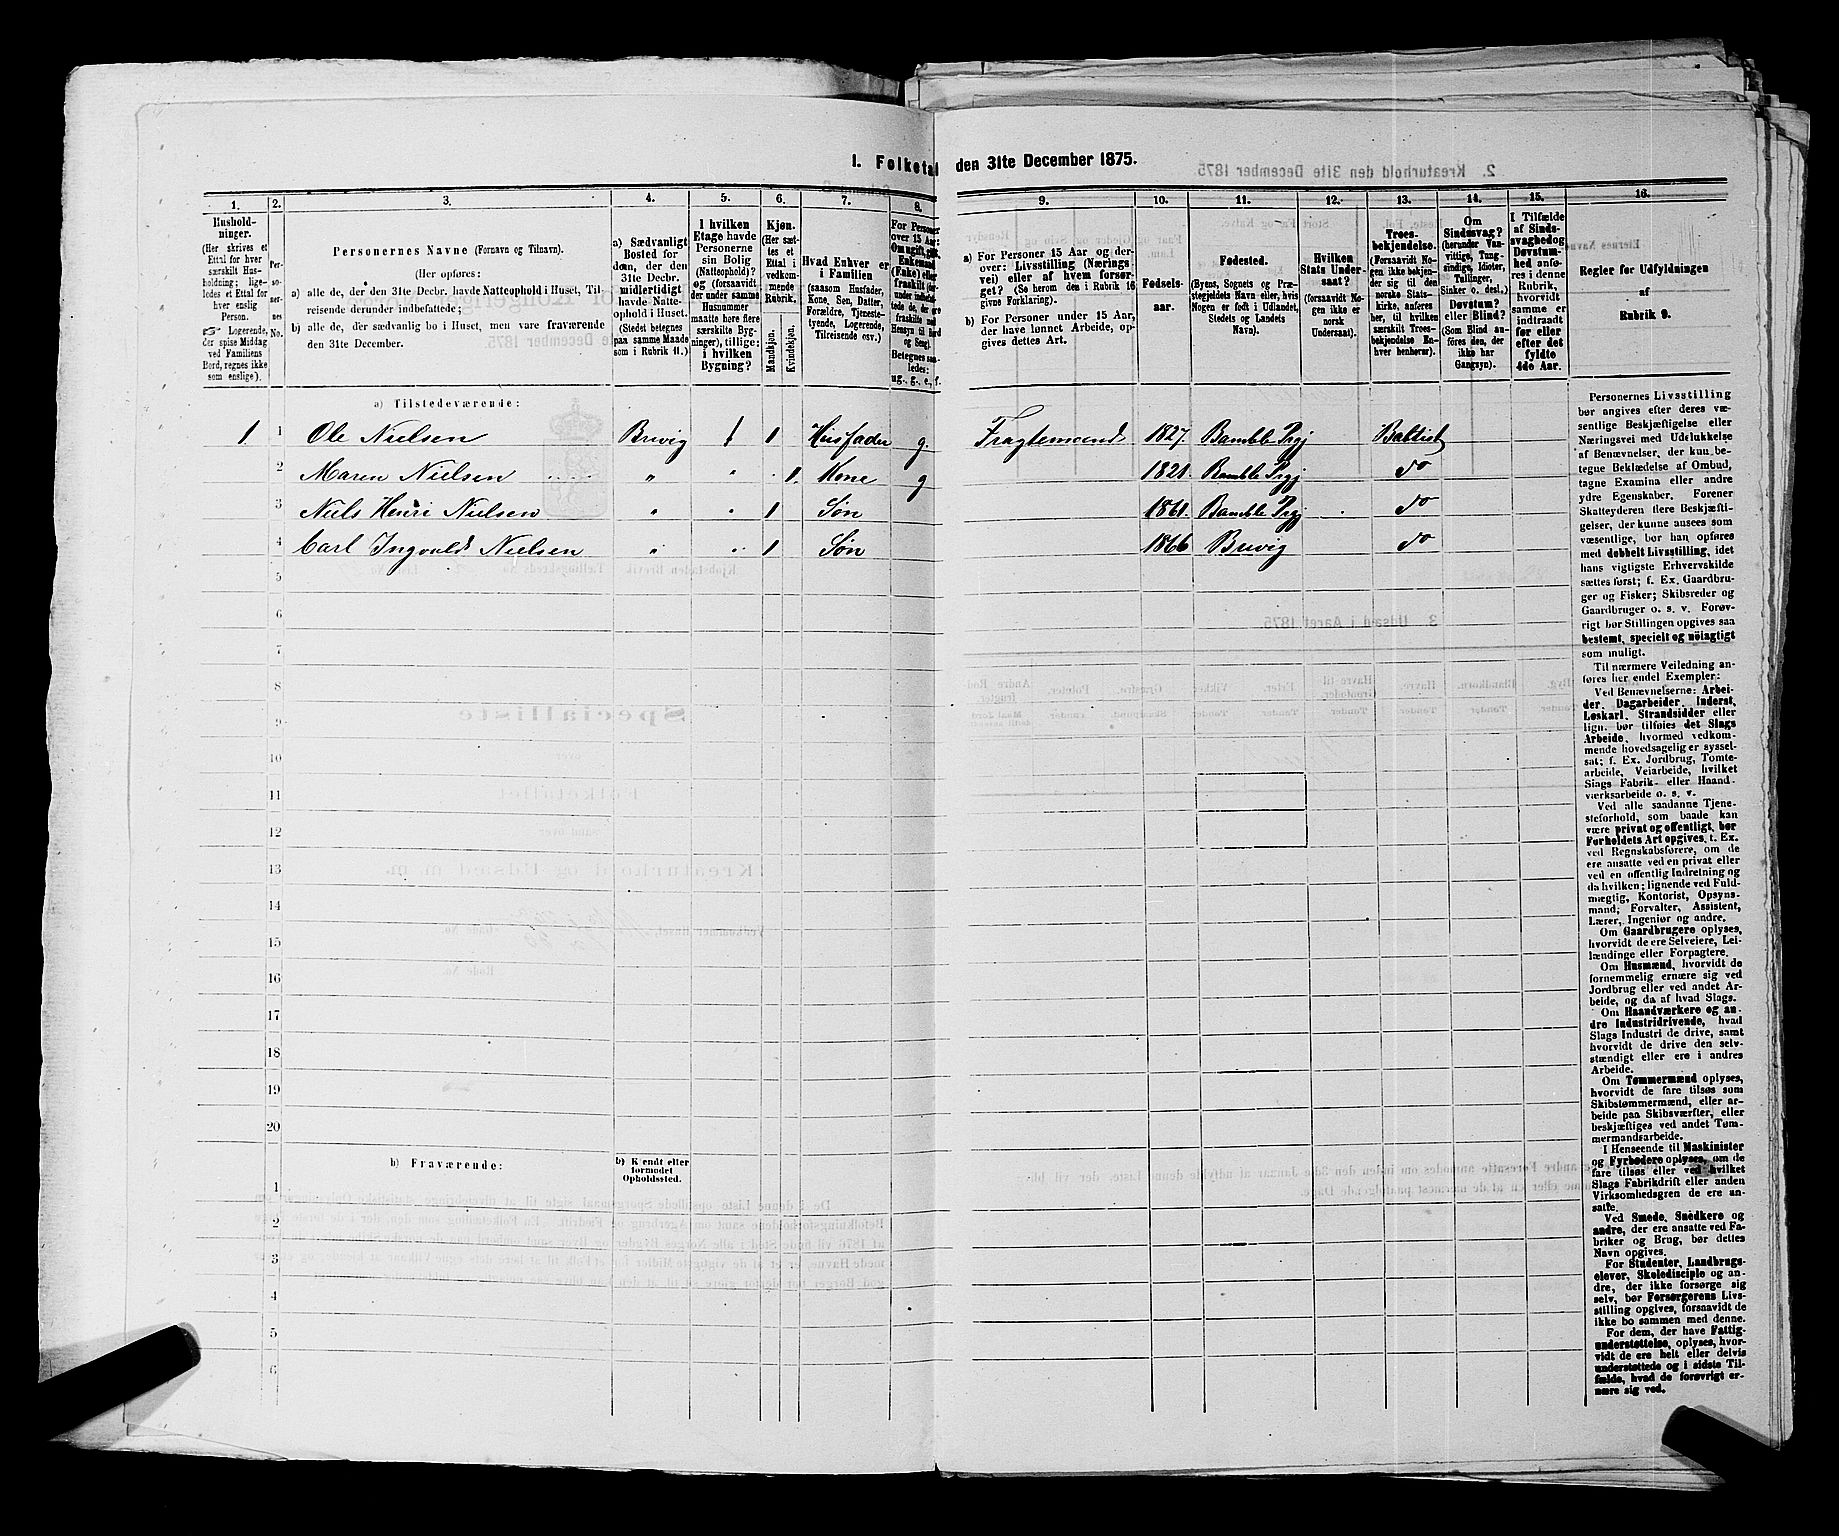 1. Folketal den 31te December 1875.
1.
Hushold-
ninger.
(Her skrives et
Ettal for hver
særskilt Hus-
holdning; lige-
ledes et Ettal for
hver enslig
Person.
Logerende,
der spise Middag
ved Familiens
Bord, regnes ikke
som enslige).
2.
Per-
so-
ner-
nes
No.
3.
Personernes Navne (Fornavn og Tilnavn).
(Her opføres:
a) alle de, der den 31te Decbr. havde Natteophold i Huset, Til-
reisende derunder indbefattede;
b) alle de, der sædvanlig bo i Huset, men vare fraværende
den 31te December.
4.
a) Sædvanligt
Bosted for
dem, der den
31te Decbr.
midlertidigt
havde Natte-
ophold i Huset.
(Stedet betegnes
paa samme Maade
som i Rubrik 11.)
5.
I hvilken
Etage havde
Personerne
sin Bolig
(Natteophold)?
og (forsaavidt
der under samme
Husnummer
maatte høre flere
særskilte Byg-
ninger), tillige:
i hvilken
Bygning?
6.
Kjøn.
(Her sæt-
tes et
Ettal i
vedkom-
mende
Rubrik.
Mandkjøn.
Kvindekjøn.
7.
Hvad Enhver er
i Familien
(saasom Husfader,
Kone, Søn, Datter,
Forældre, Tjeneste-
tyende, Logerende,
Tilreisende osv.)
8.
For Personer
over 15 Aar:
Om ugift, gift,
Enkemand
(Enke) eller
fraskilt
Betegnes saa-
ledes:
ug., g., e., f.
9.
a) For Personer 15 Aar og der-
over: Livsstilling (Nærings-
vei) eller af hvem forsør-
get? (Se herom den i Rubrik 16
givne Forklaring).
b) For Personer under 15 Aar,
der have lønnet Arbeide, op-
gives dettes Art.
10.
Fødsels-
aar.
11.
Fødested.
(Byens, Sognets og Præ-
stegjeldets Navn eller, hvis
Nogen er født i Udlandet,
Stedets og Landets
Navn).
12.
Hvilken
Stats Under-
saat?
(forsaavidt No-
gen ikke er
norsk
Undersaat).
13.
Troes-
bekjendelse.
(Forsaavidt No-
gen ikke bekjen-
der sig til den
norske Stats-
kirke, anføres
her, til hvilken
særskilt Troes-
bekjendelse En-
hver henhører).
14.
Om
Sindssvag?
(herunder Van-
vittige, Tung-
sindige, Idioter,
Tullinger,
Sinker o. desl.,)
Døvstum?
eller Blind?
(Som Blind an-
føres den, der
ikke har
Gangsyn).
15.
I Tilfælde
af Sinds-
svaghed og
Døvstum-
hed anfø-
res i denne
Rubrik,
hvorvidt
samme er
indtraadt
før eller
efter det
fyldte
4de Aar.
16.
Regler for Udfyldningen
af
Rubrik 9.
a) Tilstedeværende:
1. 1 Ole Nielsen Brevig 1 1 Husfader g. Fragtemand 1827. Bamble Prgj Babtist
2 Maren Nielsen " " 1. Kone g 1821. Bamble Prgj do
3 Niels Henri Nielsen " " 1 Søn 1861. Bamble Prgj do
4 Carl Ingvald Nielsen " " 1 Søn 1866 Brevig do
5
6
7
8
9
10
11
12
13
14
15
16
17
18
19
20
b) Fraværende:
b) Kjendt eller
formodet
Opholdssted.
1
2
3
4
5
6
Personernes Livsstilling
bør angives efter deres væ-
sentlige Beskjæftigelse eller
Næringsvei med Udelukkelse
af Benævnelser, der kun be-
tegne Beklædelse af Ombud,
tagne Examina eller andre
ydre Egenskaber. Forener
Skatteyderen flere Beskjæfti-
gelser, der kunne ansees som
væsentlige, bør han opføres
med dobbelt Livsstilling, idet
hans vigtigste Erhvervskilde
sættes først; f. Ex. Gaardbru-
ger og Fisker; Skibsreder og
Gaardbruger o. s. v. Forøv-
rigt bør Stillingen opgives saa
bestemt, specielt og nöiagtigt
som muligt.
Til nærmere Veiledning an-
føres her endel Exempler:
Ved Benævnelserne: Arbei-
der, Dagarbeider, Inderst,
Løskarl, Strandsidder eller
lign. bør tilføies det Slags
Arbeide, hvormed vedkom-
mende hovedsagelig er syssel-
sat; f. Ex. Jordbrug, Tomte-
arbeide, Veiarbeide, hvilket
Slags Fabrik- eller Haand-
værksarbeide o. s. v.
Ved alle saadanne Tjene-
steforhold, som baade kan
være privat og offentligt, bør
Forholdets Art opgives, t. Ex.
ved Regnskabsførere, om de
ere ansatte ved en privat eller
ved en offentlig Indretning og
da hvilken; lignende ved Fuld-
mægtig, Kontorist, Opsyns-
mand, Forvalter, Assistent,
Lærer, Ingeniør og andre.
Om Gaardbrugere oplyses,
hvorvidt de ere Selveiere, Lei-
lændinge eller Forpagtere.
Om Husmænd, hvorvidt de
fornemmelig ernære sig ved
Jordbrug eller ved andet Ar-
beide, og da af hvad Slags.
Om Haandværkere og an-
dre Industridrivende, hvad
Slags Industri de drive, samt
hvorvidt de drive den selv-
stændigt eller ere i andres
Arbeide.
Om Tømmermænd oplyses,
hvorvidt de fare tilsøs som
Skibstømmermænd, eller ar-
beide paa Skibsværfter, eller
beskjæftiges ved andet Tøm-
mermandsarbeide.
I Henseende til Maskinister
og Fyrbødere oplyses, om de
fare tilsøs eller ved hvilket
Slags Fabrikdrift eller anden
Virksomhedsgren de ere an-
satte.
Ved Smede, Snedkere og
andre, der ere ansatte ved Fa-
briker og Brug, bør dettes
Navn opgives.
For Studenter, Landbrugs-
elever, Skoledisciple og an-
dre, der ikke forsørge sig
selv, bør Forsørgerens Livs-
stilling opgives, forsaavidt de
ikke bo sammen med denne.
For dem, der have Fattig-
understøttelse, oplyses, hvor-
vidt de ere helt eller delvis
understøttede og i sidste Til-
fælde, hvad de forøvrigt er-
nære sig ved.